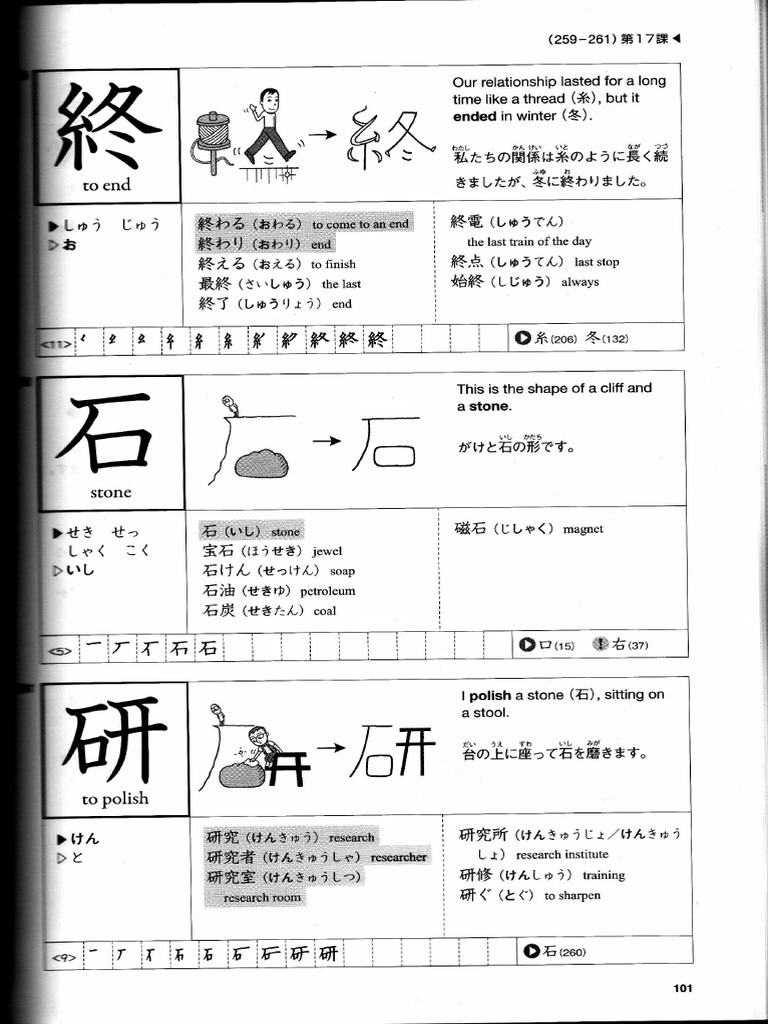 (259–261) 第17課◀
終
to end
Our relationship lasted for a long
time like a thread (糸), but it
ended in winter (冬).
わたし かんけい いと なが つづ
私たちの関係は糸のように長く続
ふゆ お
きましたが、冬に終わりました。
▶しゅう じゅう
▷お
終わる（おわる） to come to an end
終わり（おわり） end
終える（おえる） to finish
最終（さいしゅう） the last
終了（しゅうりょう） end
終電（しゅうでん）
the last train of the day
終点（しゅうてん） last stop
始終（しじゅう） always
<11>
糸(206) 冬(132)
石
stone
This is the shape of a cliff and
a stone.
いし かたち
がけと石の形です。
▶せき せっ
しゃく こく
▷いし
石（いし） stone
宝石（ほうせき） jewel
石けん（せっけん） soap
石油（せきゆ） petroleum
石炭（せきたん） coal
磁石（じしゃく） magnet
<5> 一 石 石
口(15) 右(37)
研
to polish
I polish a stone (石), sitting on
a stool.
だい うえ すわ いし みが
台の上に座って石を磨きます。
▶けん
▷と
研究（けんきゅう） research
研究者（けんきゅうしゃ） researcher
研究室（けんきゅうしつ）
research room
研究所（けんきゅうじょ／けんきゅう
しょ） research institute
研修（けんしゅう） training
研ぐ（とぐ） to sharpen
<9>
石(260)
101